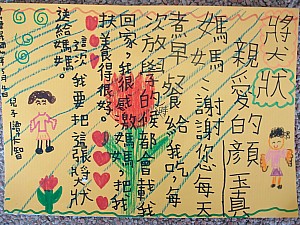 獎狀
親愛的顏玉真
媽媽:謝謝您每天
煮早餐給我吃,每
次放學的時候都會載我
回家,我很感激媽媽,把我
扶養得很好。
這次我要把這張獎狀
送給媽媽。
兒子
中華民國